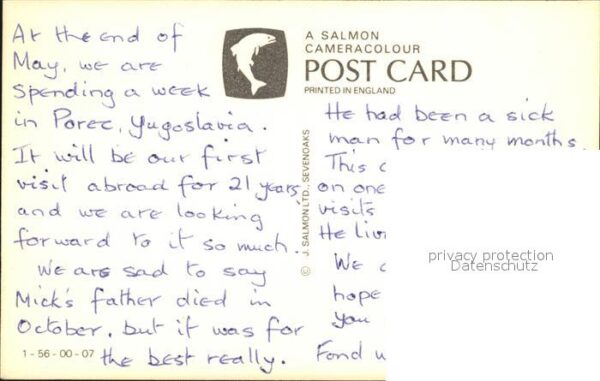 At the end of
May, we are
spending a week
in Porec, Yugoslavia.
It will be our first
visit abroad for 21 years,
and we are looking
forward to it so much.
We are sad to say
Mick's father died in
October, but it was for
the best really.
1-56-00-07
A SALMON
CAMERACOLOUR
POST CARD
PRINTED IN ENGLAND
© J. SALMON LTD., SEVENOAKS
He had been a sick
man for many months
This
on one
visits
He
We
hope
you
Fond
privacy protection
Datenschutz